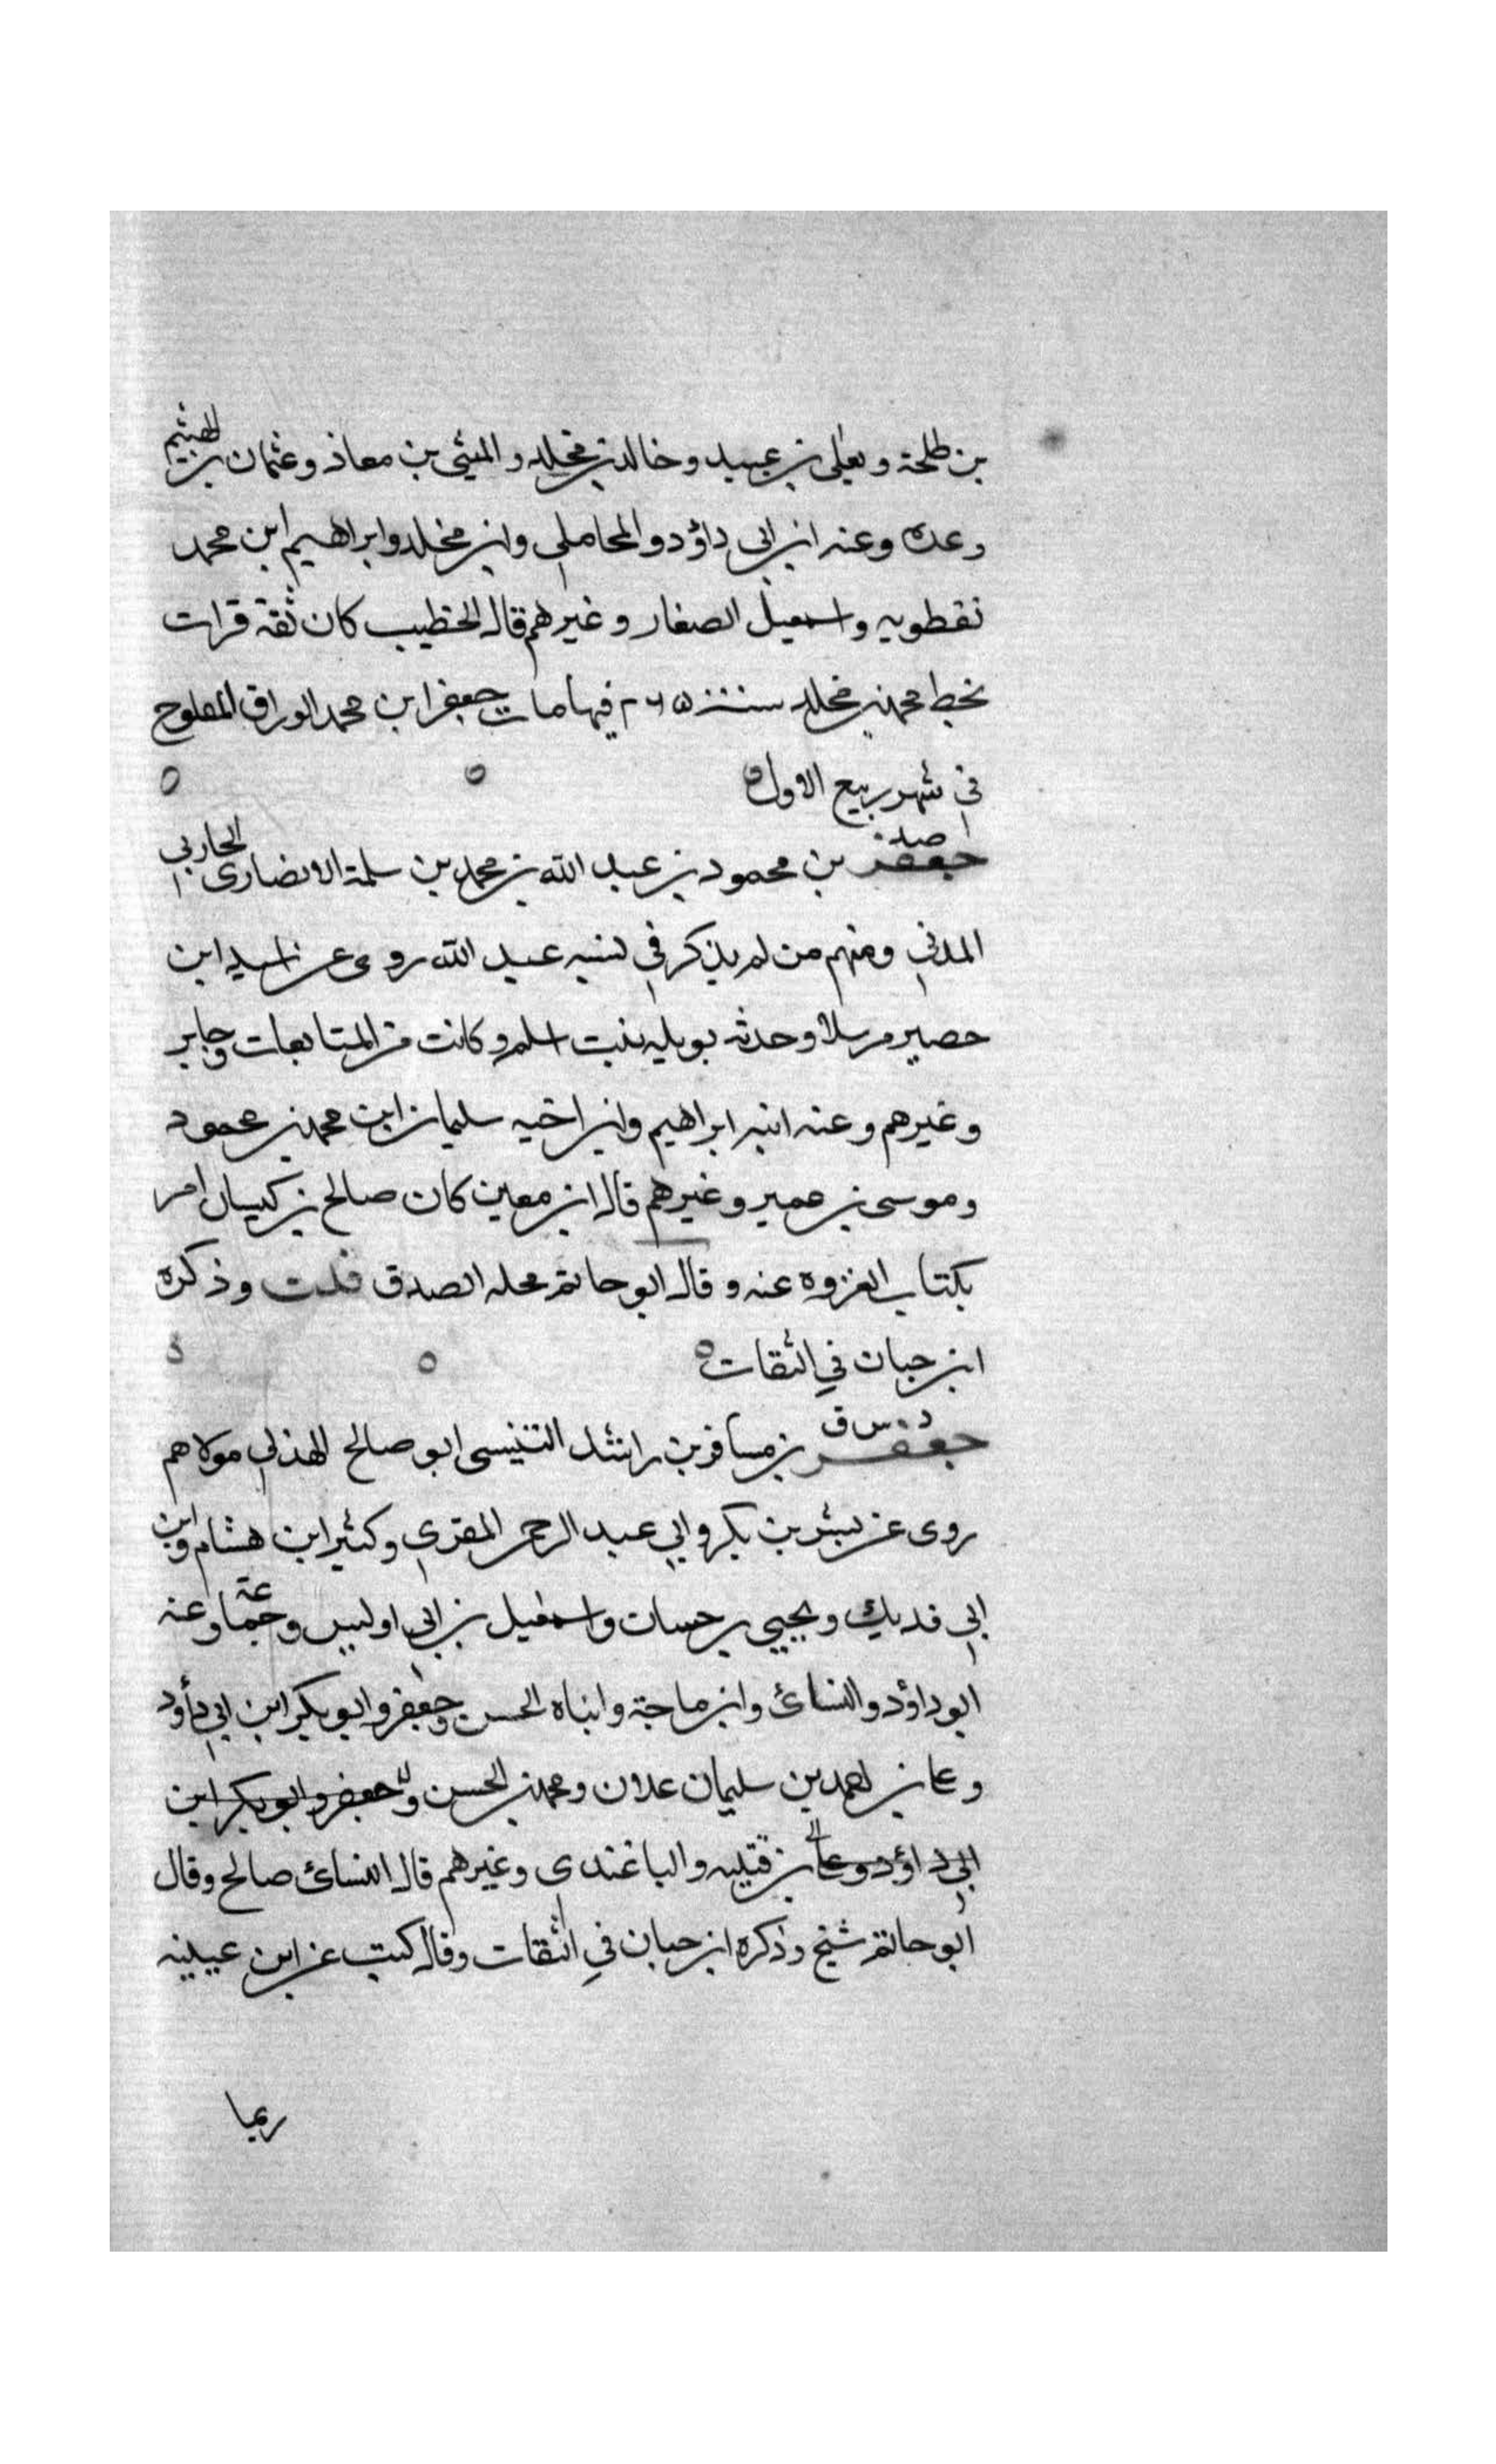 بن طلحة ويعلى بن عبيد وخالد بن مخلد والمثنى بن معاذ وعثمان بن الهيثم
وعده وعنه ابن ابى داؤد والمحاملي وابن مخلد وابراهيم ابن محمد
نفطويه واسمعيل الصفار وغيرهم قال الخطيب كان ثقة قرات
بخط محمد بن مخلد سنة ٢٦٥ فيها مات جعفر ابن محمد الوراق المفلوح
في شهر ربيع الاول ه ه ه
صد
جعفر بن محمود بن عبد الله بن محمد بن سلمة الانصارى الحاربي
المدني ومنهم من لم يذكر في نسبه عبد الله روى عن اسيد ابن
حصير مرسلا وحدثه بويليه بنت اسلم وكانت من المتابعات وجابر
وغيرهم وعنه ابنه ابراهيم وابن اخيه سليمان ابن محمد بن محمود
وموسى بن عمير وغيرهم قال ابن معين كان صالح بن كيسان امر
بكتاب الغزوه عنه وقال ابو حاتم محله الصدق قلت وذكره
ابن حبان في الثقات ه ه ه
د س ق
جعفر بن مسافر بن راشد التنيسى ابو صالح الهذلي مولاهم
روى عن بشر بن بكر وابي عبد الرحمن المقرى وكثير ابن هشام وابن
ابي فديك ويحيى بن حسان واسمعيل بن ابي اوليس وجماعة وعنه
ابو داؤد والنسائ وابن ماجة وابناه الحسن وجعفر وابو بكر ابن ابي داؤد
وعلى بن احمد بن سليمان علان ومحمد بن الحسن وجعفر وابو بكر ابن
ابي داؤد بن قتيبه والباغندى وغيرهم قال النسائ صالح وقال
ابو حاتم شيخ وذكره ابن حبان في الثقات وقال كتب عن ابن عيينه
ربما